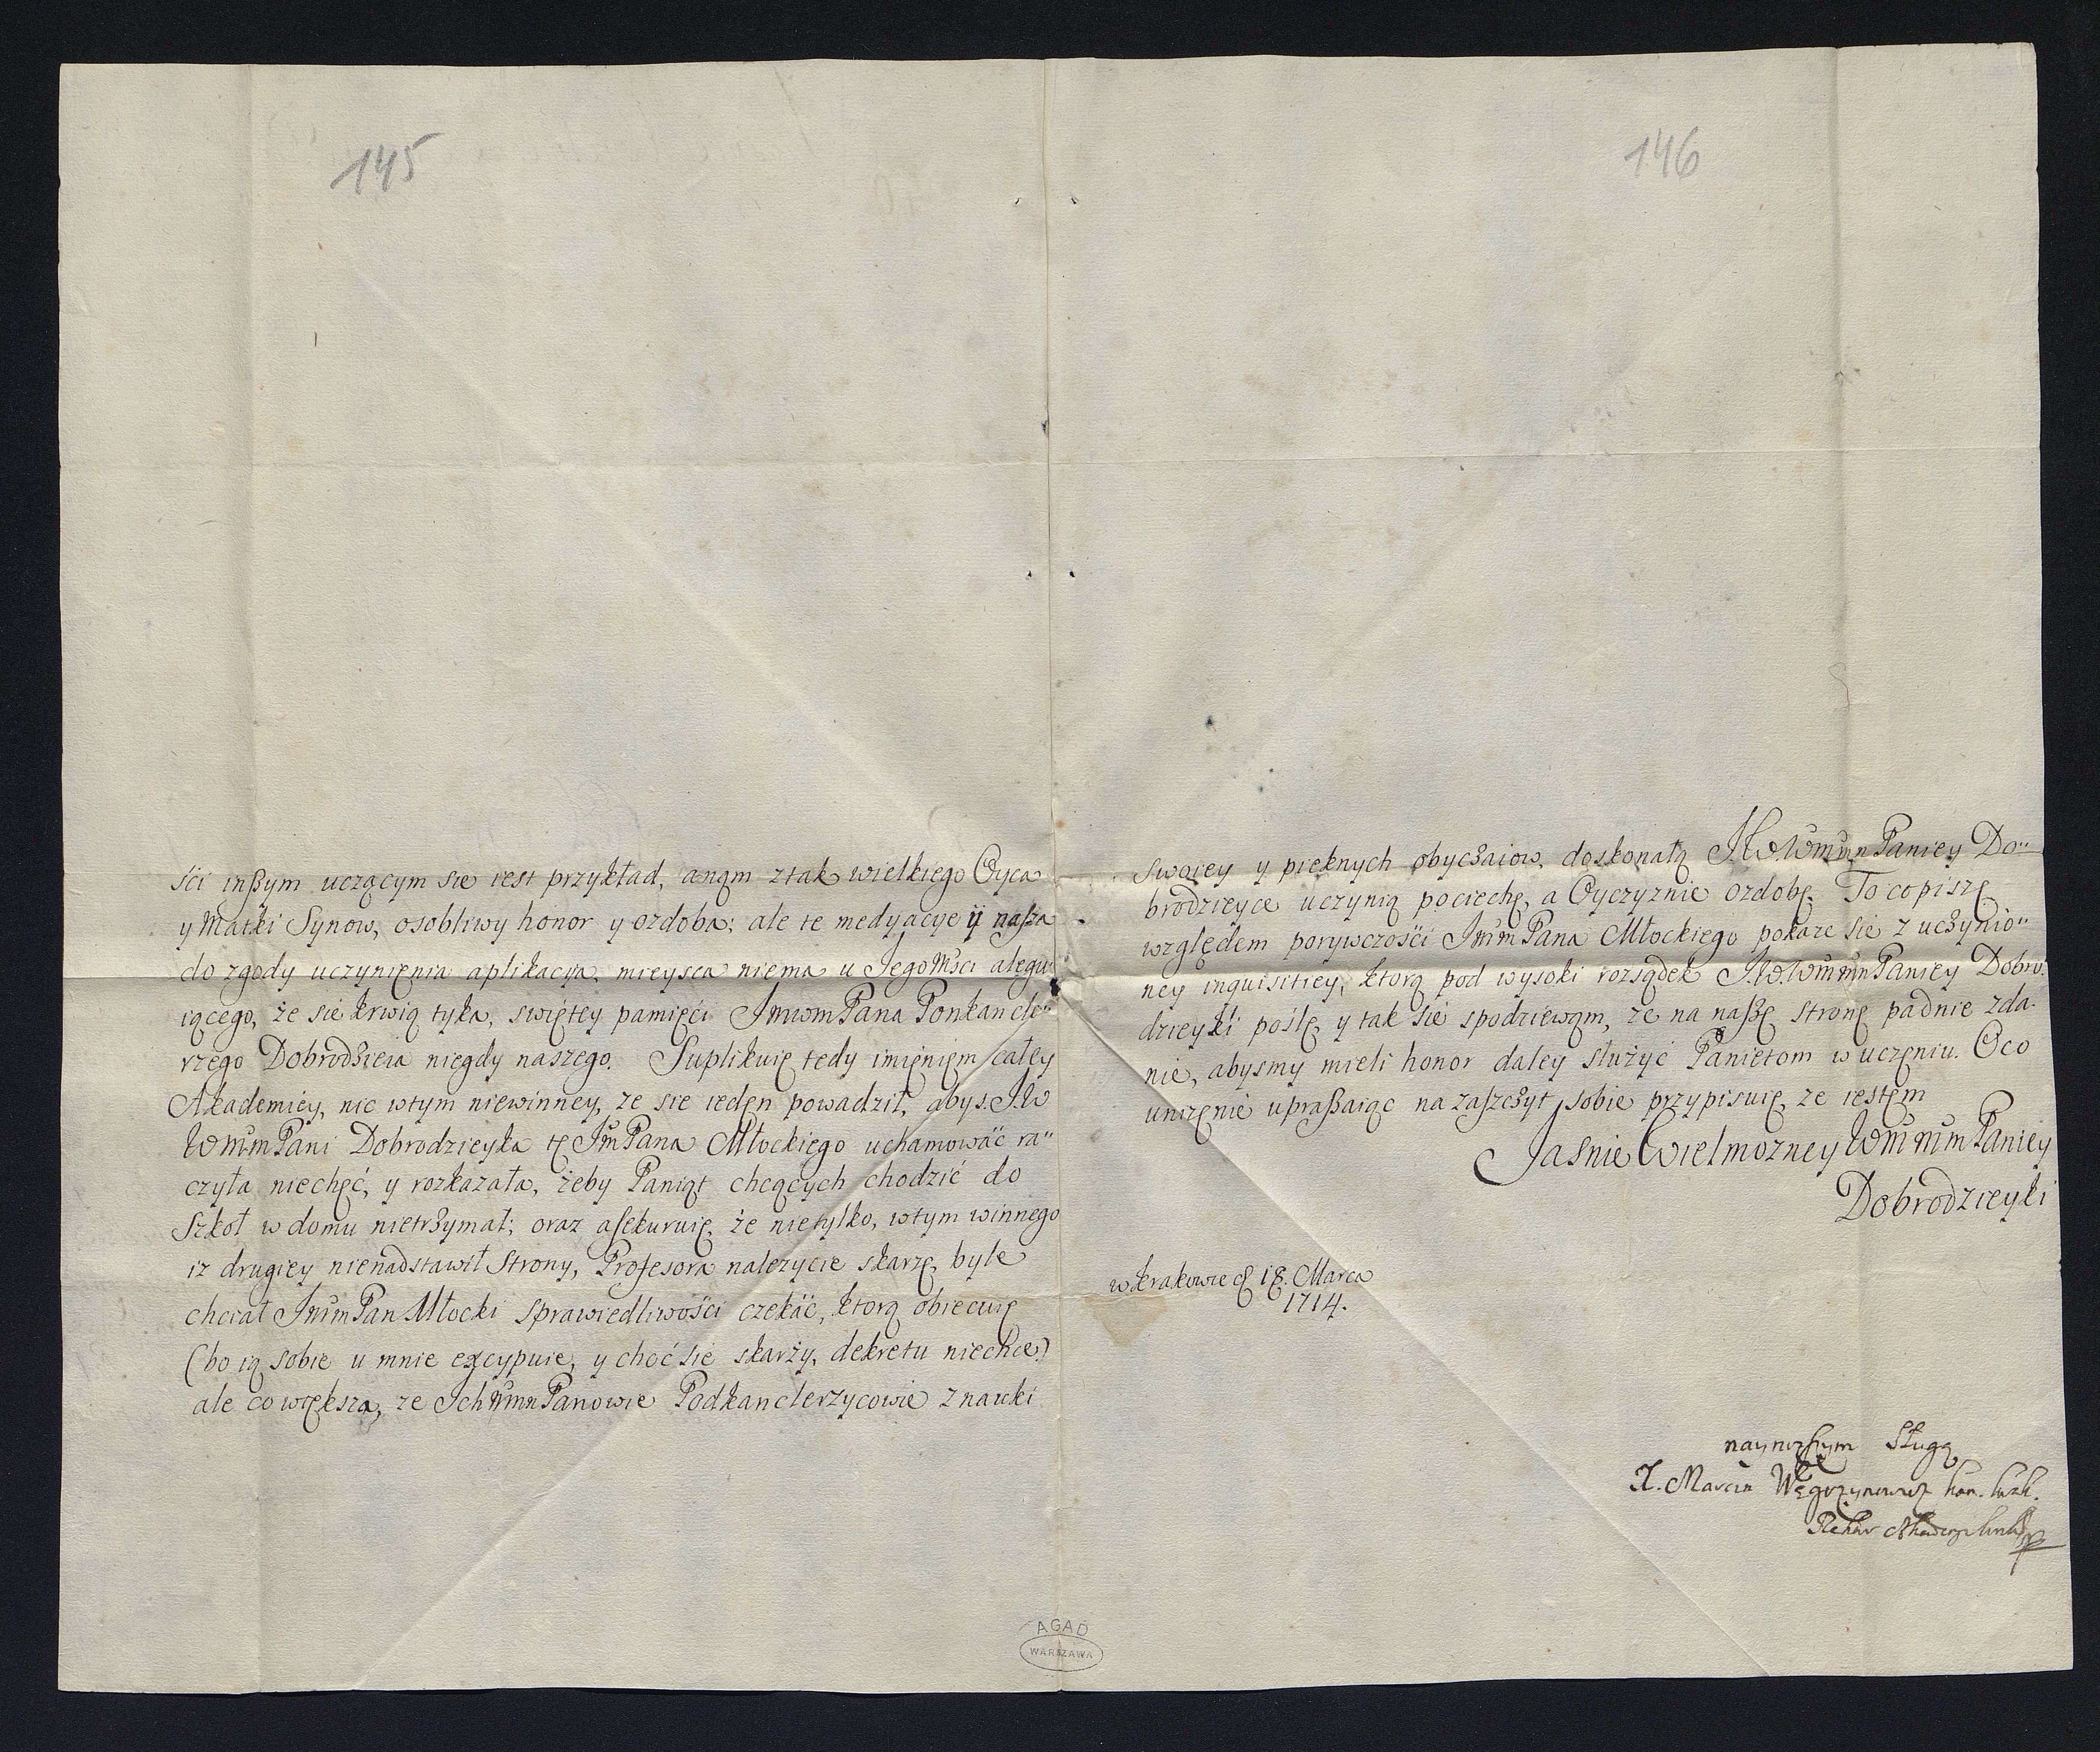 145
ści inßym uczącym sie iest przykład, a nąm z tak wielkiego Oyca
y Matki Synow, osobliwy honor y ozdoba; ale te medyacye ÿ nasza
do zgody uczynięnia aplikacya, mieysca niema u Jego Mści alegu⸗
iącego, że sie krwią tyka, swiętey pamięci Pana Ponkancle⸗
rzego Dobrodzieia niegdy naszego. Suplikuię tedy imięnięm całey
Akademiey, nic wtym niewinney, ze sie iedęn powadził, abyś J.W
WmmPani Dobrodzieyka tę JmPana Młockiego uchamować ra⸗
czyła niechęć, y rozkazała, żeby Paniąt chcących chodzić do
Szkoł w domu nietrzymał; oraz asekuruię, że nietylko, wtym winnego
iz drugiey nienadstawił Strony, Profesora nalezycie skarzę, byle
chciał Pan Młocki sprawiedliwości czekać, ktorą obiecuię
(bo ią sobie u mnie excypuie, y choć sie skarży, dekretu niechce)
ale co większa, ze Panowie Podkanclerzycowie z nauki
146
swoiey y pieknych obyczaiow, doskonałą J.W.WmmPaniey Do⸗
brodzieyce uczynią pociechę, a Oyczyznie ozdobę. To co piszę
względem porywczości Pana Młockiego pokaze sie z uczynio⸗
ney inquisitiey, ktorą pod wysoki rozsądek J.W.WmmPaniey Dobro⸗
dzieyki poślę, y tak sie spodziewąm, ze na naßę stronę padnie zda⸗
nie, abysmy mieli honor daley służyć Panietom w uczęniu. O co
unizęnie upraßaiąc na zaszczyt sobie przypisuię, ze iestęm
Jasnie Wielmozney WmmPaniey
Dobrodzieyki
w Krakowie d 18. Marca
1714.
nayniższym Sługą
X. Marcin Węgrzynowicz kan. krak.
Rektor
AGAD
WARSZAWA